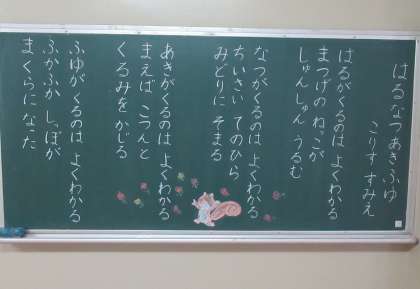 はるなつあきふゆ
こりす すみえ
はるがくるのは よくわかる
まつげの ねっこが
しゅんしゅん うるむ
なつがくるのは よくわかる
ちいさい てのひら
みどりに そまる
あきがくるのは よくわかる
まえば こつんと
くるみを かじる
ふゆが くるのは よくわかる
ふかふか しっぽが
まくらに なった